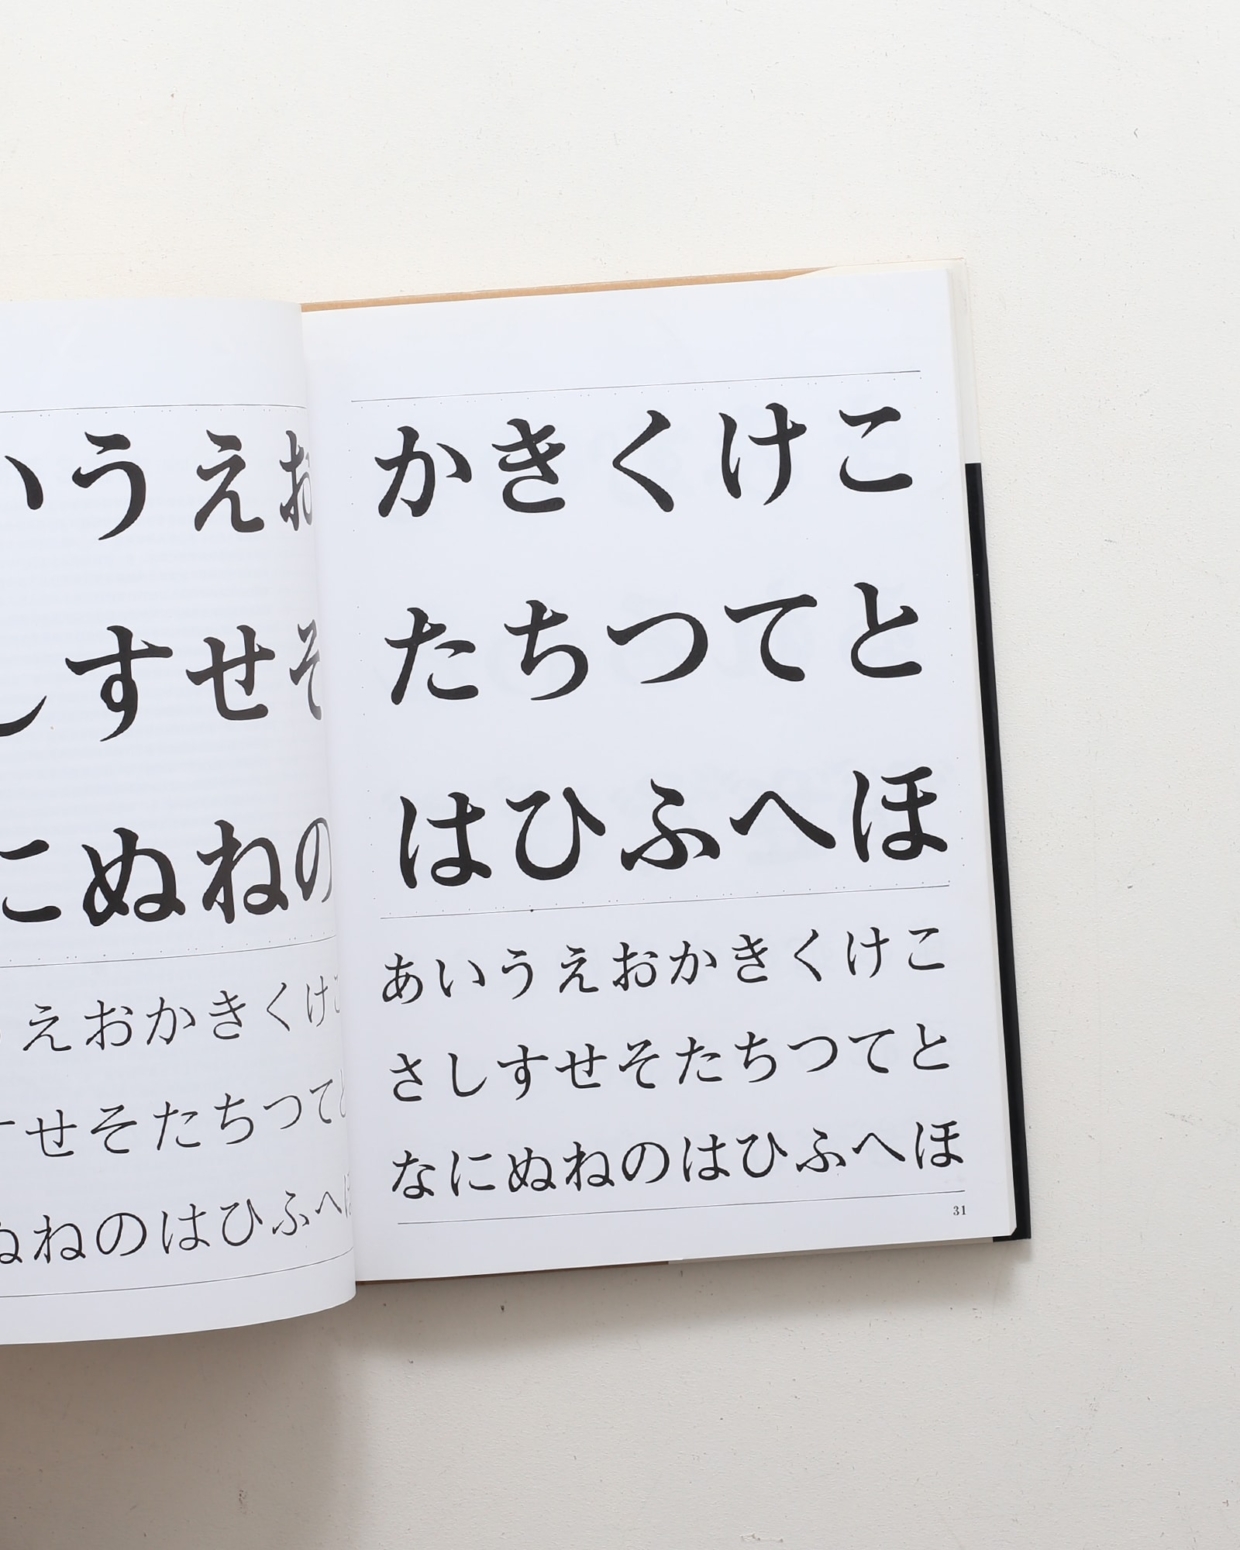 いうえお
しすせそ
にぬねの
えおかきくけこ
すせそたちつてと
ぬねのはひふへほ
かきくけこ
たちつてと
はひふへほ
あいうえおかきくけこ
さしすせそたちつてと
なにぬねのはひふへほ
31